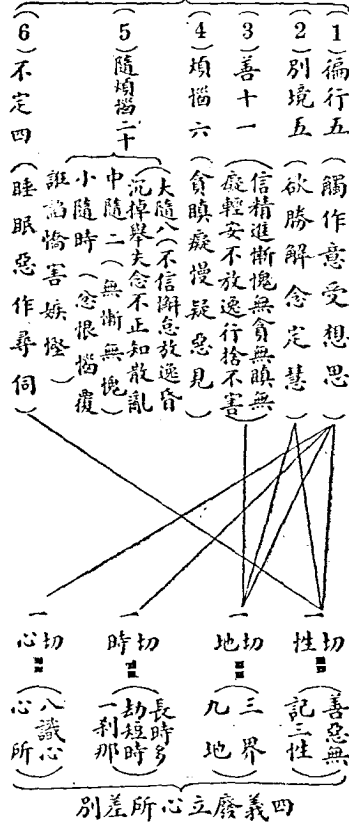 (1)徧行五(觸作意受想思)
(2)別境五(欲勝解念定慧)
(3)善十一(信精進慚愧無貪無瞋無
癡輕安不放逸行捨不害)
(4)煩惱六(貪瞋癡慢疑惡見)
(5)隨煩惱二十
大隨八(不信懈怠放逸昏
沉掉舉失念不正知散亂)
中隨二(無慚無愧)
小隨時(忿恨惱覆
誑諂憍害嫉慳)
(6)不定四(睡眠惡作尋伺)
一切性=(善惡無
記三性)
一切地=(三界
九地)
一切時=(長時多
劫短時
一剎那)
一切心=(八識心
心所)
四義廢立心所差別